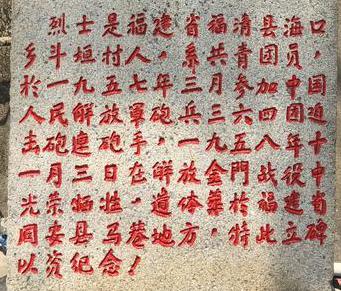 烈士是福建省福清县海口
乡斗垣村人,系共青团员,
於一九五七年三月参加中国
人民解放軍砲兵三六四团迫
击砲连砲手,一九五八年十
一月三日在解放金門战役中
光荣牺牲,遗体葬於福建省
同安县马巷地方特此立碑
以资纪念!